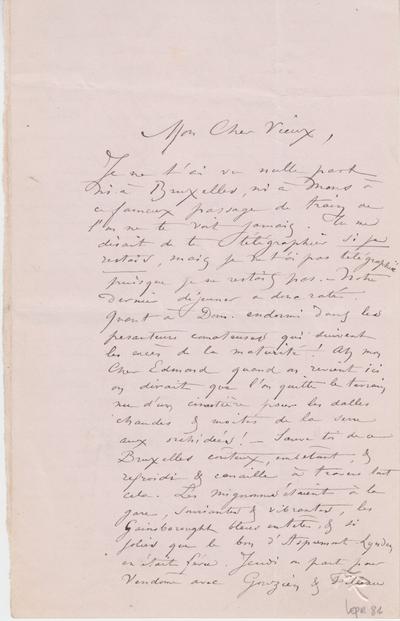 Mon Cher Vieux,
Je ne t'ai vu nulle part
ni à Bruxelles, ni à Mons à
ce fameux passage de train où
l'on ne te voit jamais. Tu me
disais de te télégraphier si je
restais, mais je t'ai pas télégraphié
puisque je ne restais pas. – Notre
dernier déjeuner a donc raté.
Quant à Dom. endormi dans les
pesanteurs comateuses qui suivent
les excès de la maturité! Ah mon
Cher Edmond quand on revient ici
on dirait que l'on quitte le terrain
nu d'un cimetière pour les dalles
chaudes & moites de la serre
aux orchidées! – Sauve toi de ce
Bruxelles coûteux, embêtant, &
refroidi & canaille à travers tout
cela. Les mignonnes étaient à la
gare, souriantes & vibrantes, les
Gainsborough bleus en tête, & si
jolies que le bon d'Aspremont Lynden
en était fier. Jeudi on part pour
Vendôme avec Gouzien &